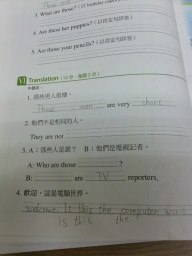 3. Who are those? (以 holiday
4. Are these her puppies? (以肯定句詳答)
5. Are those your pencils? (以否定句詳答)
VI Translation
1. 那些男人很矮。
Those men are very short
2. 他們不是相同的人。
They are not
3. A：那些人是誰？ B：他們是電視記者。
A: Who are those ?
B: are TV reporters.
4. 歡迎，這是電腦世界。
welcome. It this the computer
is this the